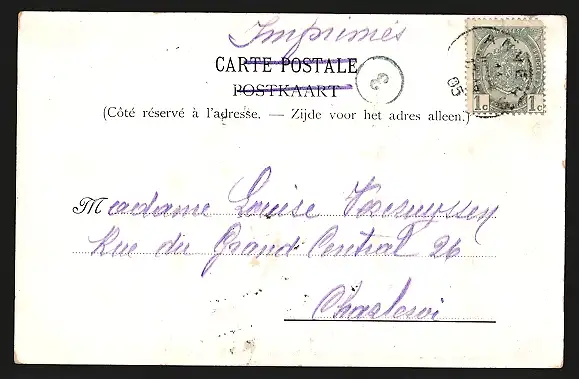 Imprimés
CARTE POSTALE
POSTKAART
3
(Côté réservé à l'adresse. — Zijde voor het adres alleen.)
05
1c 1c
Madame Louise
Rue du Grand Central 26
Charleroi